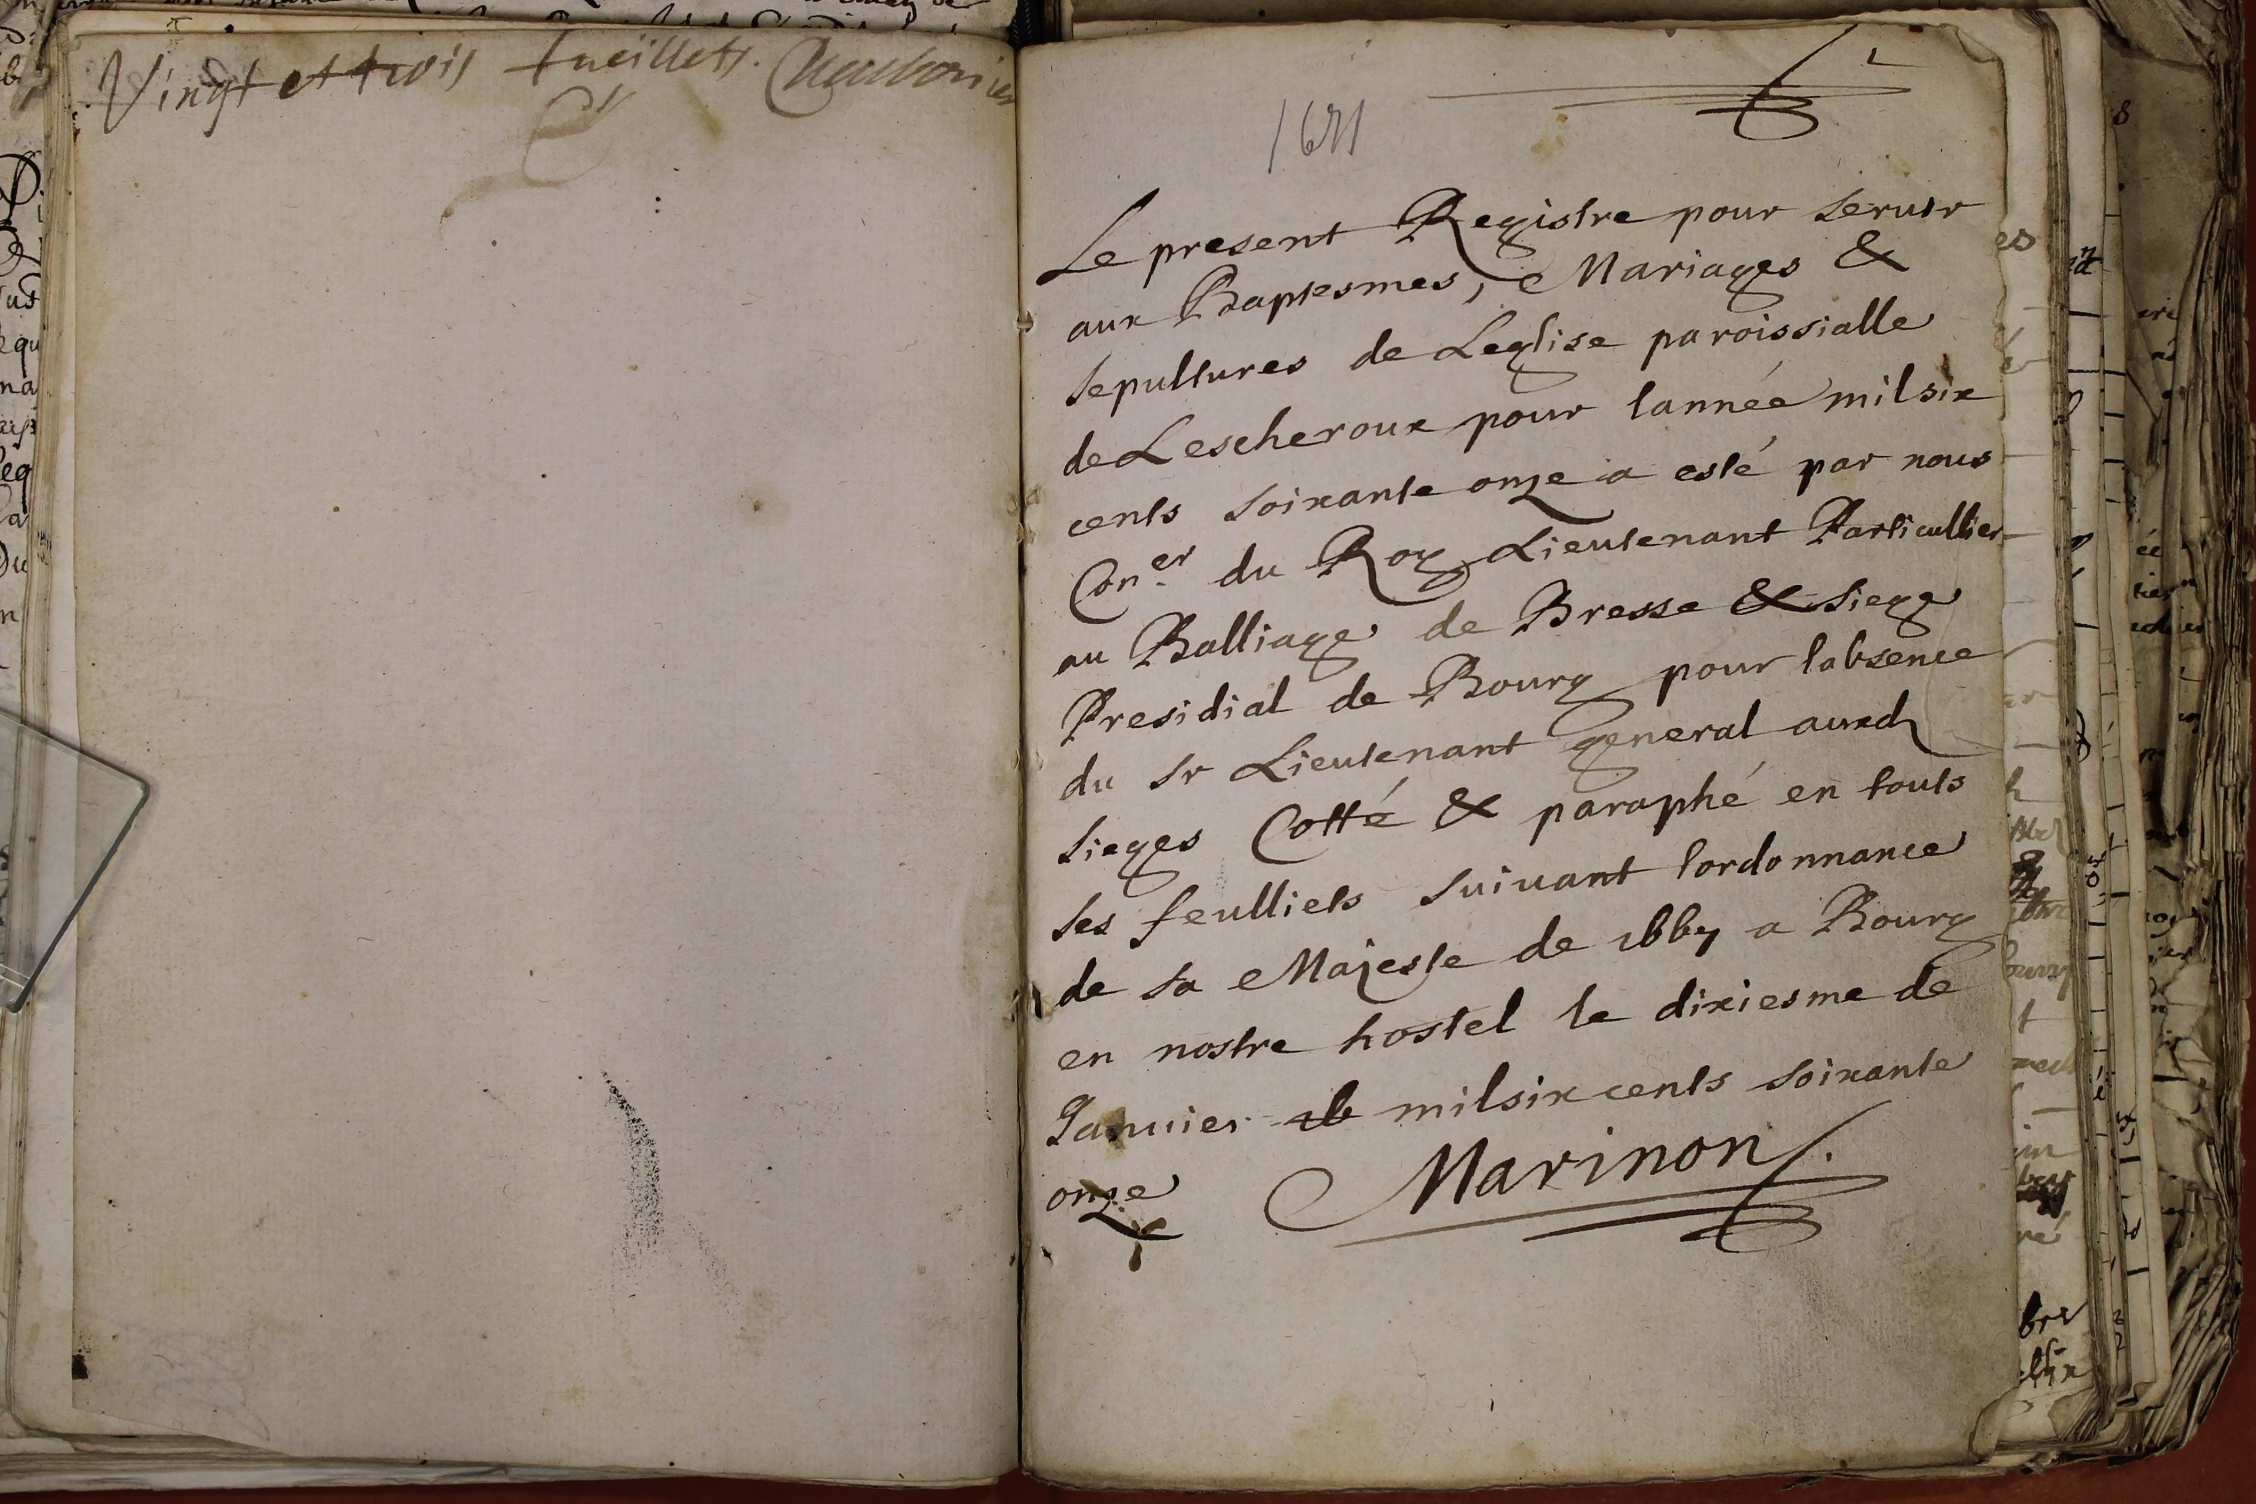 Vingt et trois fueillets.
1
1671
Le present Registre pour seruir
aux Baptesmes, Mariages &
sepultures de Leglise paroissialle
de Lescheroux pour lannée mil six
cents soixante onze a esté par nous
Con.er du Roy Lieutenant Particullier
au Balliage de Bresse & siege
Presidial de Bourg pour labsence
du sr Lieutenant general auxd
sieges Cotté & paraphé en touts
ses feulliets suiuant lordonnance
de sa Majeste de 1667 a Bourg
en nostre hostel le dixiesme de
Januier 16 mil six cents soixante
onze
Marinon